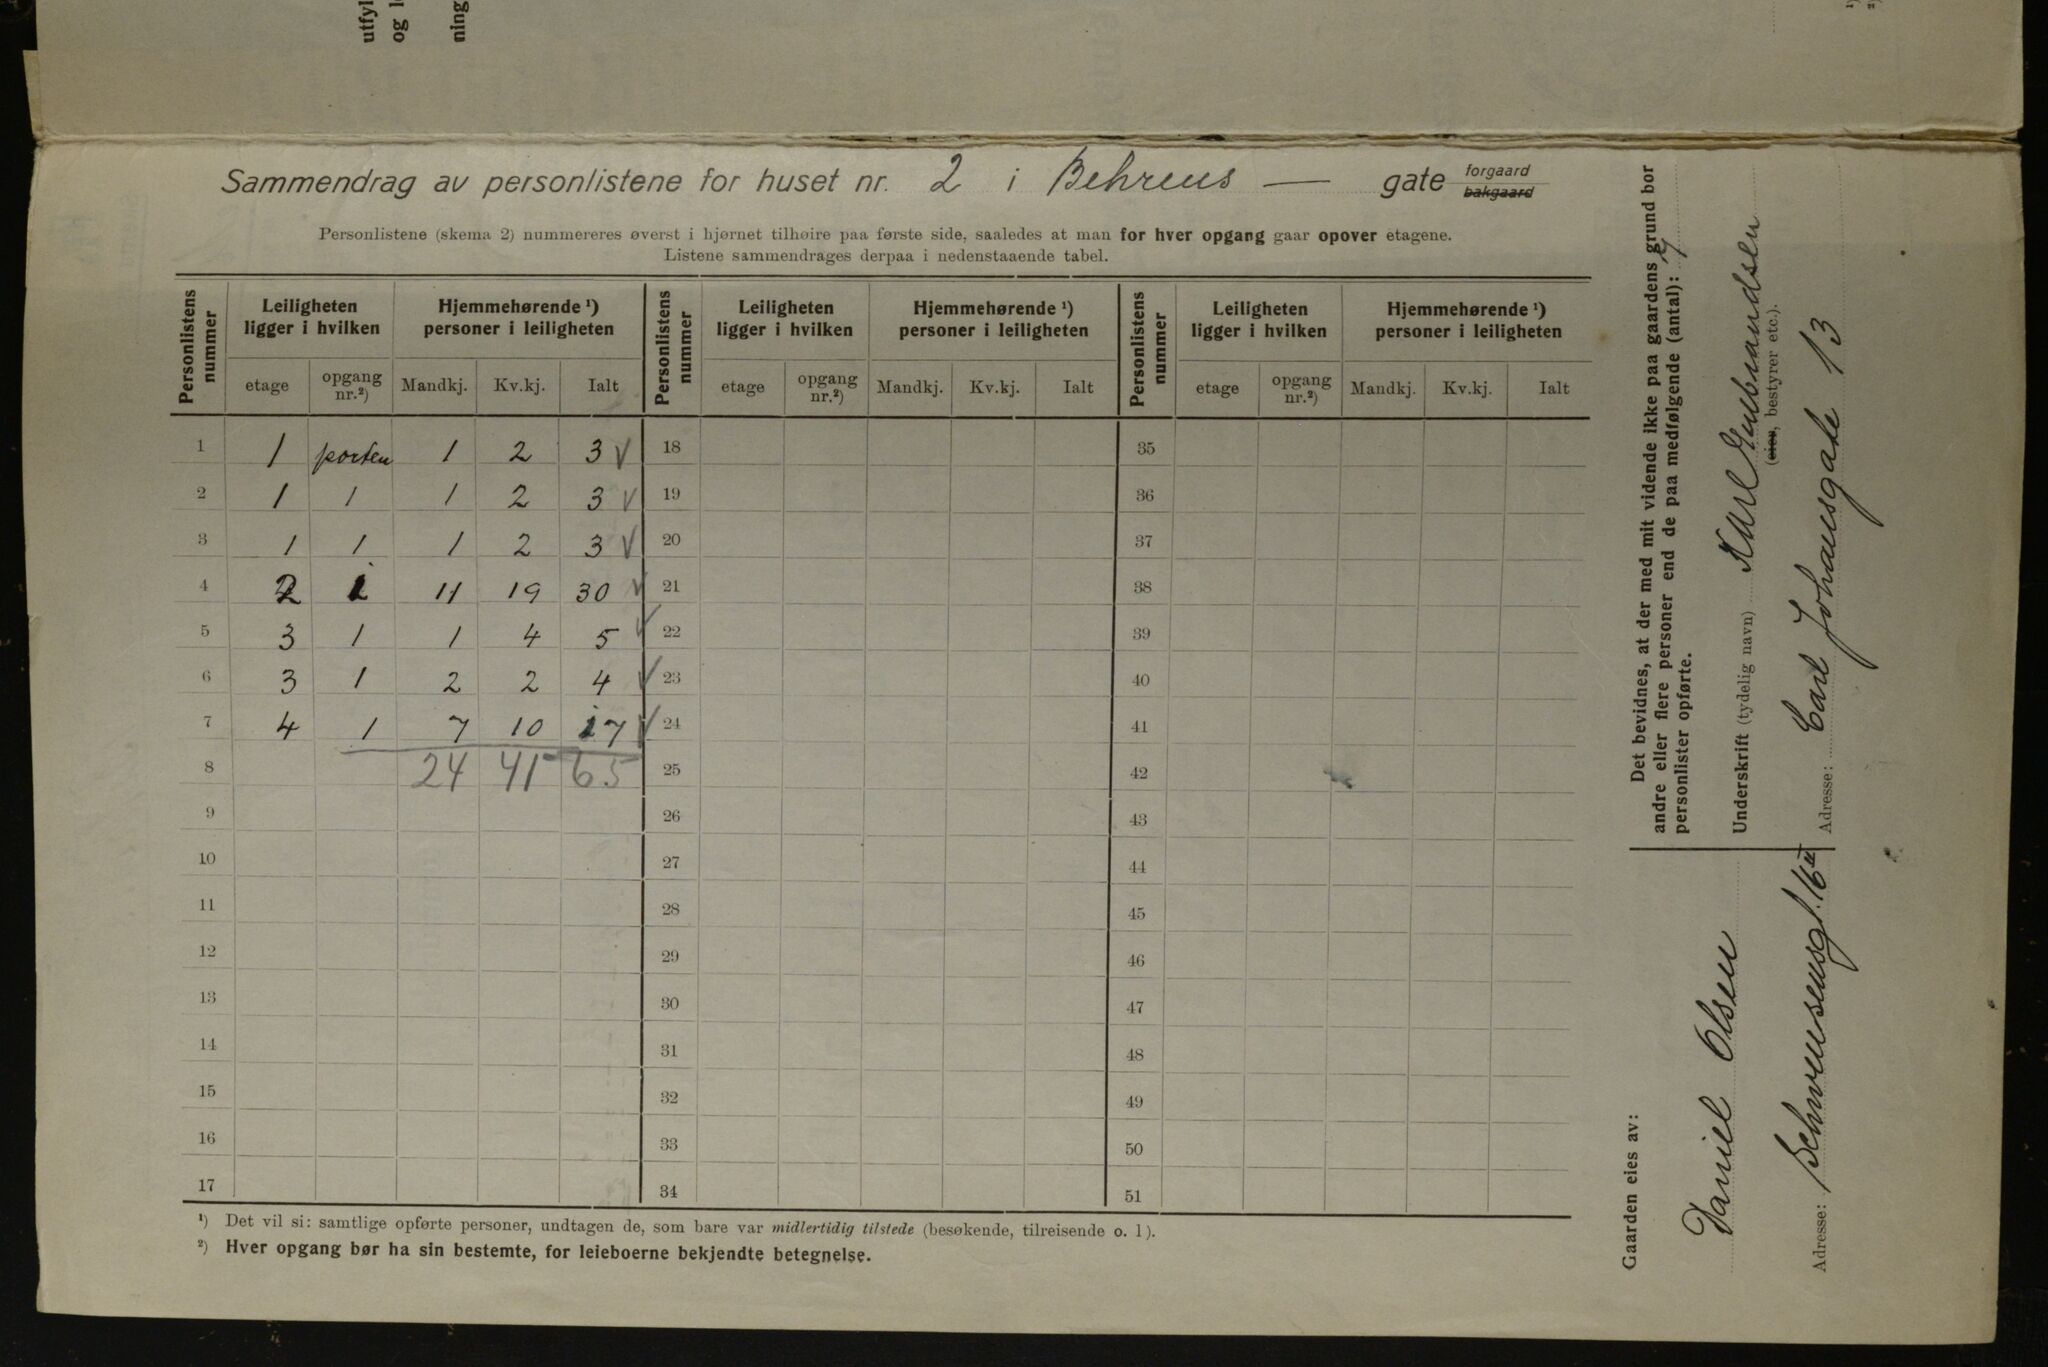 utfyl
og l
ning
¹)
²)
Sammendrag av personlistene for huset nr. 2 i Behrens — gate forgaard bakgaard
Personlistene (skema 2) nummereres øverst i hjørnet tilhøire paa første side, saaledes at man for hver opgang gaar opover etagene.
Listene sammendrages derpaa i nedenstaaende tabel.
Personlistens nummer | Leiligheten ligger i hvilken | Hjemmehørende ¹) personer i leiligheten | Personlistens nummer | Leiligheten ligger i hvilken | Hjemmehørende ¹) personer i leiligheten | Personlistens nummer | Leiligheten ligger i hvilken | Hjemmehørende ¹) personer i leiligheten
etage | opgang nr.²) | Mandkj. | Kv.kj. | Ialt | etage | opgang nr.²) | Mandkj. | Kv.kj. | Ialt | etage | opgang nr.²) | Mandkj. | Kv.kj. | Ialt
1 | 1 | porten | 1 | 2 | 3 √ | 18 | 35
2 | 1 | 1 | 1 | 2 | 3 √ | 19 | 36
3 | 1 | 1 | 1 | 2 | 3 √ | 20 | 37
4 | 2 | 1 | 11 | 19 | 30 √ | 21 | 38
5 | 3 | 1 | 1 | 4 | 5 √ | 22 | 39
6 | 3 | 1 | 2 | 2 | 4 √ | 23 | 40
7 | 4 | 1 | 7 | 10 | 17 √ | 24 | 41
8 | 24 | 41 | 65 | 25 | 42
9 | 26 | 43
10 | 27 | 44
11 | 28 | 45
12 | 29 | 46
13 | 30 | 47
14 | 31 | 48
15 | 32 | 49
16 | 33 | 50
17 | 34 | 51
¹) Det vil si: samtlige opførte personer, undtagen de, som bare var midlertidig tilstede (besøkende, tilreisende o. l).
²) Hver opgang bør ha sin bestemte, for leieboerne bekjendte betegnelse.
Det bevidnes, at der med mit vidende ikke paa gaardens grund bor
andre eller flere personer end de paa medfølgende (antal): 7
personlister opførte.
Underskrift (tydelig navn) Karl Gulbrandsen
(eies, bestyrer etc.).
Adresse: Carl Johansgate 13
Gaarden eies av:
Daniel Olsen
Adresse: Schwensensgt. 16 II